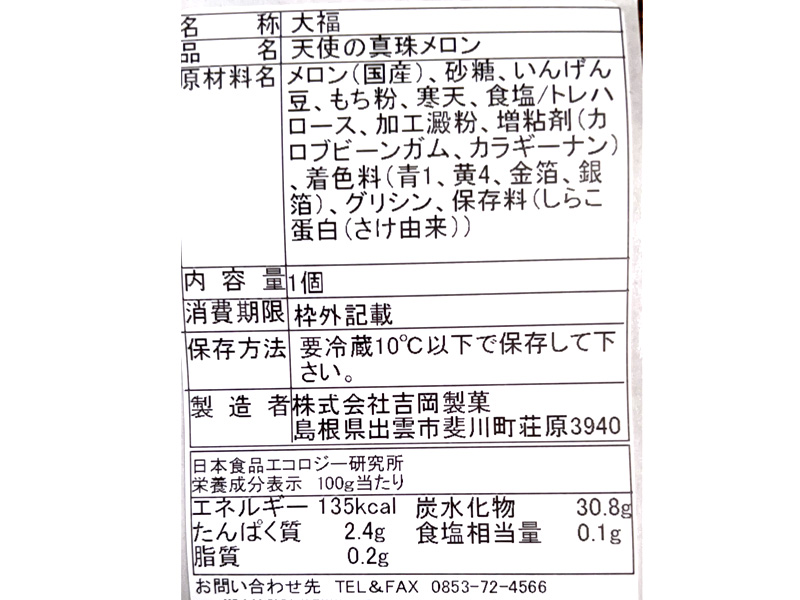 名称 大福
品名 天使の真珠メロン
原材料名 メロン(国産)、砂糖、いんげん
豆、もち粉、寒天、食塩/トレハ
ロース、加工澱粉、増粘剤(カ
ロブビーンガム、カラギーナン)
、着色料(青1、黄4、金箔、銀
箔)、グリシン、保存料(しらこ
蛋白(さけ由来))
内容量 1個
消費期限 枠外記載
保存方法 要冷蔵10℃以下で保存して下
さい。
製造者 株式会社吉岡製菓
島根県出雲市斐川町荘原3940
日本食品エコロジー研究所
栄養成分表示 100g当たり
エネルギー 135kcal 炭水化物 30.8g
たんぱく質 2.4g 食塩相当量 0.1g
脂質 0.2g
お問い合わせ先 TEL&FAX 0853-72-4566